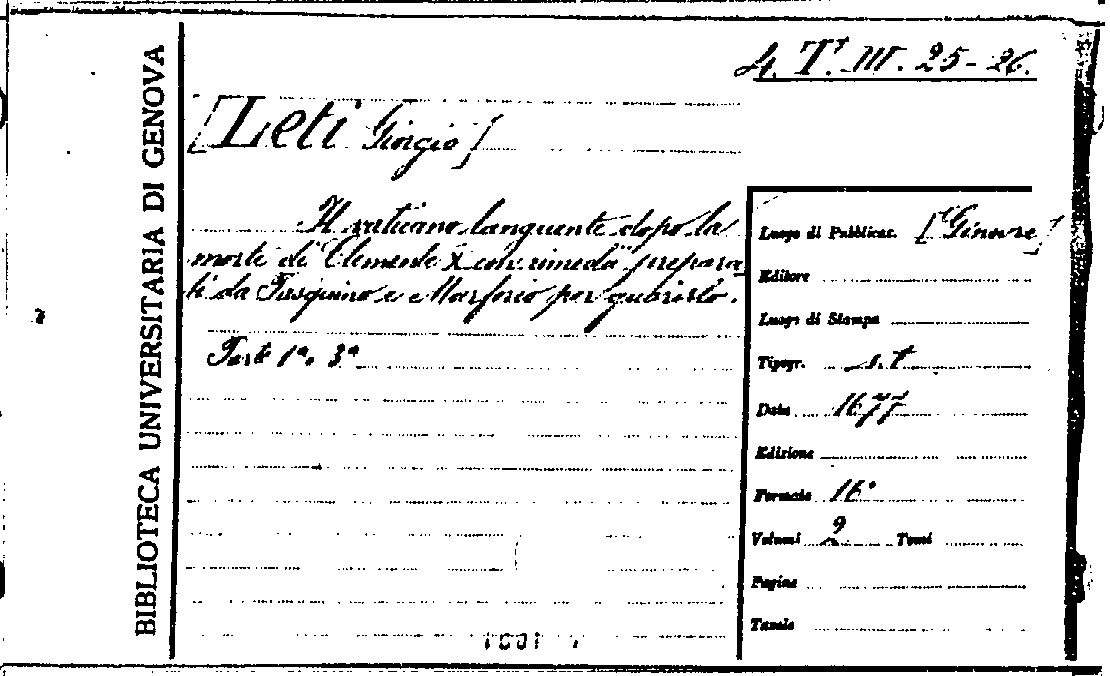 BIBLIOTECA UNIVERSITARIA DI GENOVA
4. T. III. 25-26.
[Leti Giorgio]
Il vaticano languente dopo la
morte di Clemente X con rimedii prepara
ti da Pasquino e Marforio per guarirlo.
Parte 1ª. 3ª
Luogo di Pubblicaz. [Ginevre]
Editore
Luogo di Stampa
Tipogr. s.t
Data 1677
Edizione
Formato 16°
Volumi 2 Tomi
Pagine
Tavole